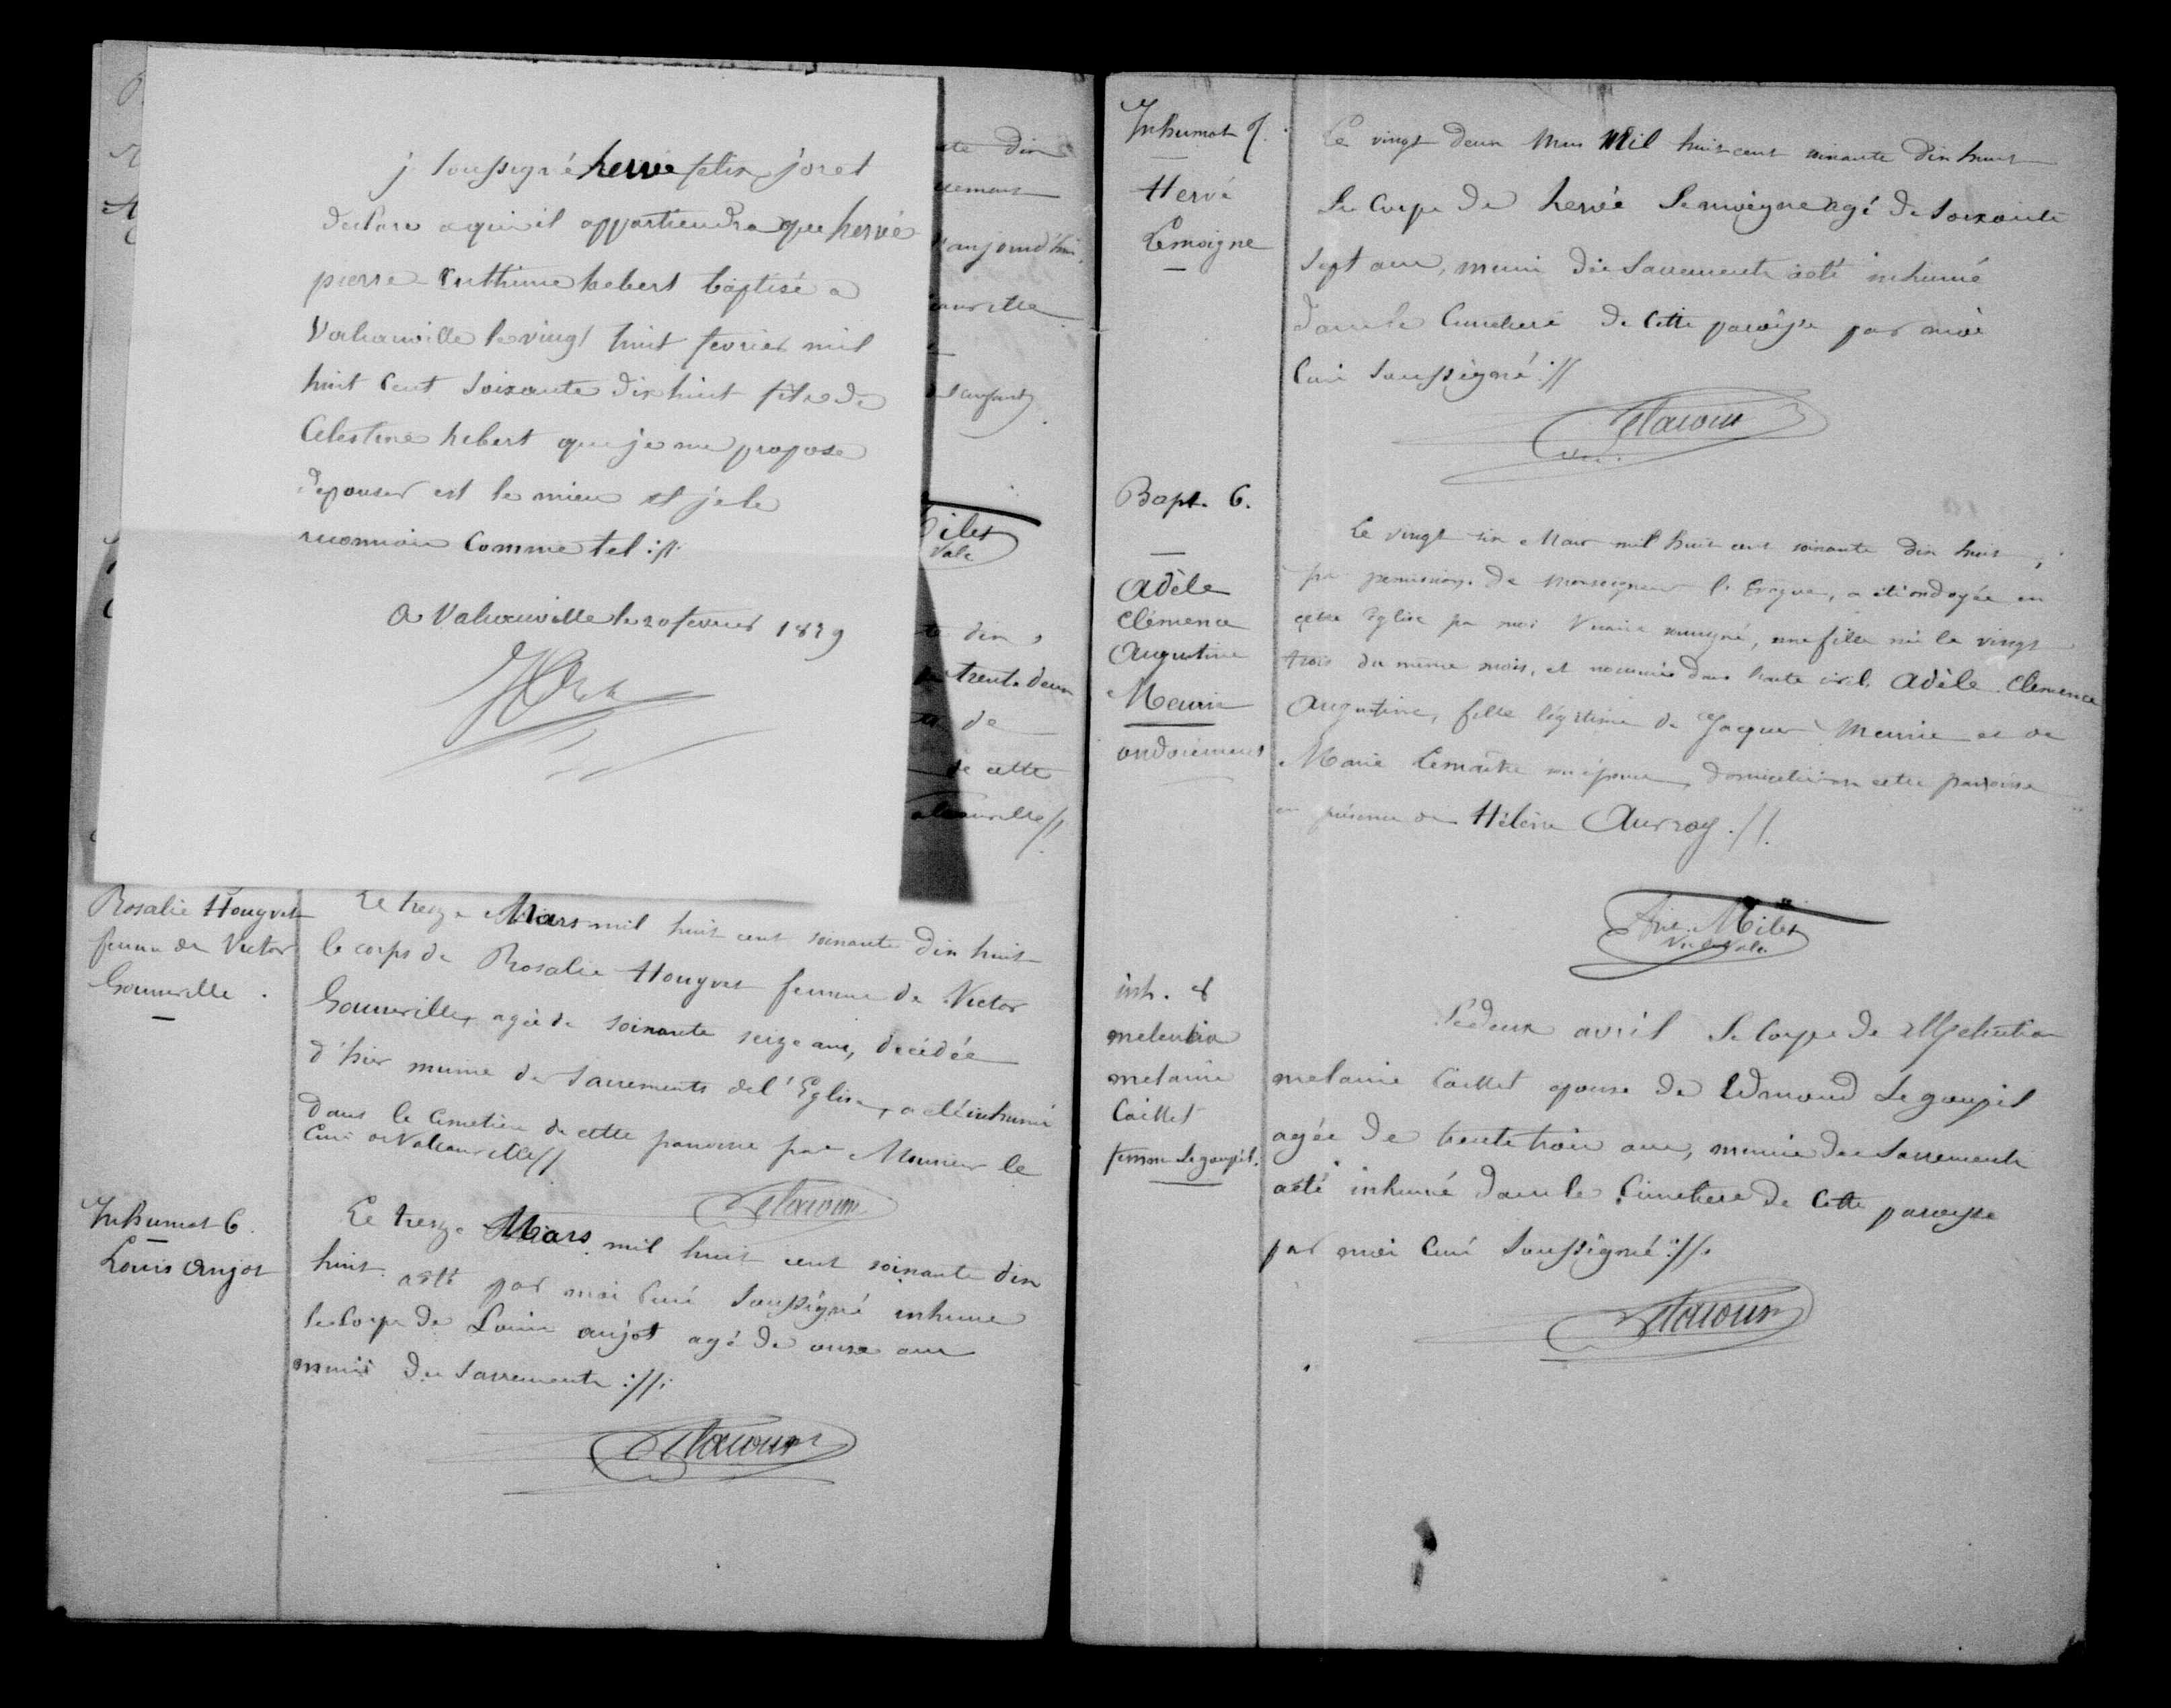 j soussigné hervé felix joret
declare a qui il appartiendra que hervé
pierre hebert baptisé a
Valcanville le vingt huit fevrier mil
huit cent soixante dix huit fils de
Celestine hebert que je me propose
d'epouser est le mien et je le
reconnais comme tel ://:
a Valcanville le 20 fevrier 1879
aujourd'hui
trente deux
de
de cette
Rosalie Hougvet
femme de Victor
Gonneville
Le treize Mars mil huit cent soixante dix huit
le corps de Rosalie Hougvet femme de Victor
Gonneville, agée de soixante seize ans, décédée
d'hier munie des Sacrements de l'Eglise, a été inhumé
dans le cimetière de cette paroisse par Monsieur le
Curé de Valcanville //.
Inhumat 6.
Louis Anjot
Le treize Mars mil huit cent soixante dix
huit a été par moi curé soussigné inhumé
le corps de Louis anjot agé de onze ans
muni des sacrements ://:
Inhumat 7.
Hervé
Lemoigne
Le vingt deux Mars Mil huit cent soixante dix huit
Le corps de hervé Lemoigne agé de soixante
sept ans, muni des sacrements a été inhumé
dans le cimetiere de cette paroisse par moi
curé soussigné ://
Bapt. 6.
Adèle
Clémence
Augustine
Meurie
ondoiement
Le vingt six Mars mil huit cent soixante dix huit,
par permission de Monseigneur l'Evêque, a été ondoyée en
cette Eglise par moi Vicaire soussigné, une fille née le vingt
trois du même mois, et nommée dans l'acte civil Adèle Clémence
Augustine, fille légitime de Jacques Meurie et de
Marie Lemaitre son épouse, domiciliés en cette paroisse
en présence de Hélène Auvray .//.
Miles
Vic de Valc.
inh. 8
melanie
Caillet
femme Legoupil.
Le deux avril le corps de
melanie Caillet epouse de Edmond Legoupil
agée de trente trois ans, munie des sacrements
a été inhumé dans le cimetiere de cette paroisse
par moi curé soussigné ://.